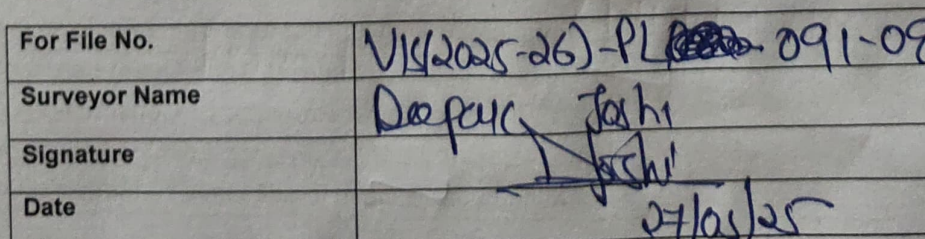 For File No. VIS(2025-26)-PL 091-09
Surveyor Name Deepak Joshi
Signature DJoshi
Date 27/05/25